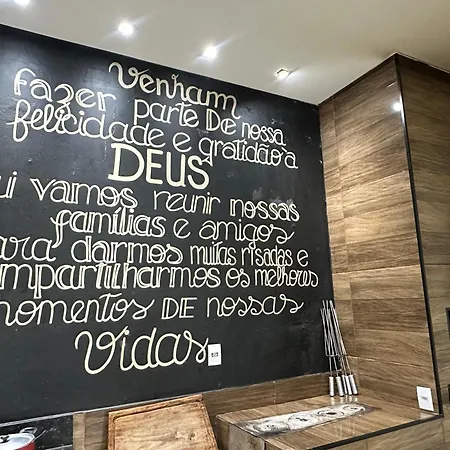 venham
fazer parte De nossa
felicidade e gratidão a
DEUS
ui vamos reunir nossas
famílias e amigos
ara darmos muitas risadas e
mpartilharmos os melhores
momentos DE nossas
vidas